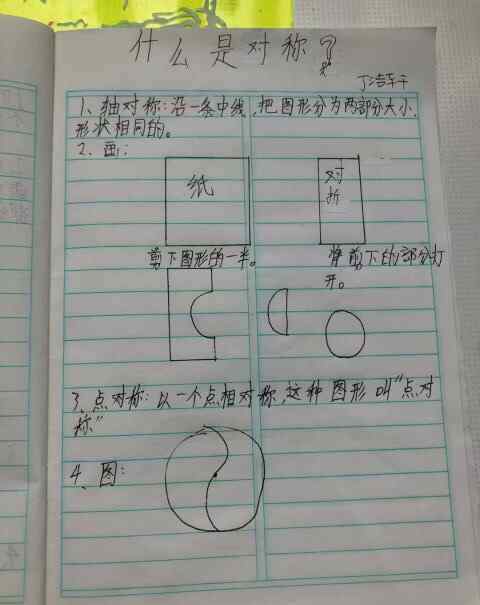 什么是对称？
丁洁
1、轴对称：沿一条中线，把图形分为两部分大小，
形状相同的。
2、画：
纸
对
折
剪下图形的一半。
将剪下的部分打
开。
3、点对称：以一个点相对称，这种图形叫“点对
称”
4、图：